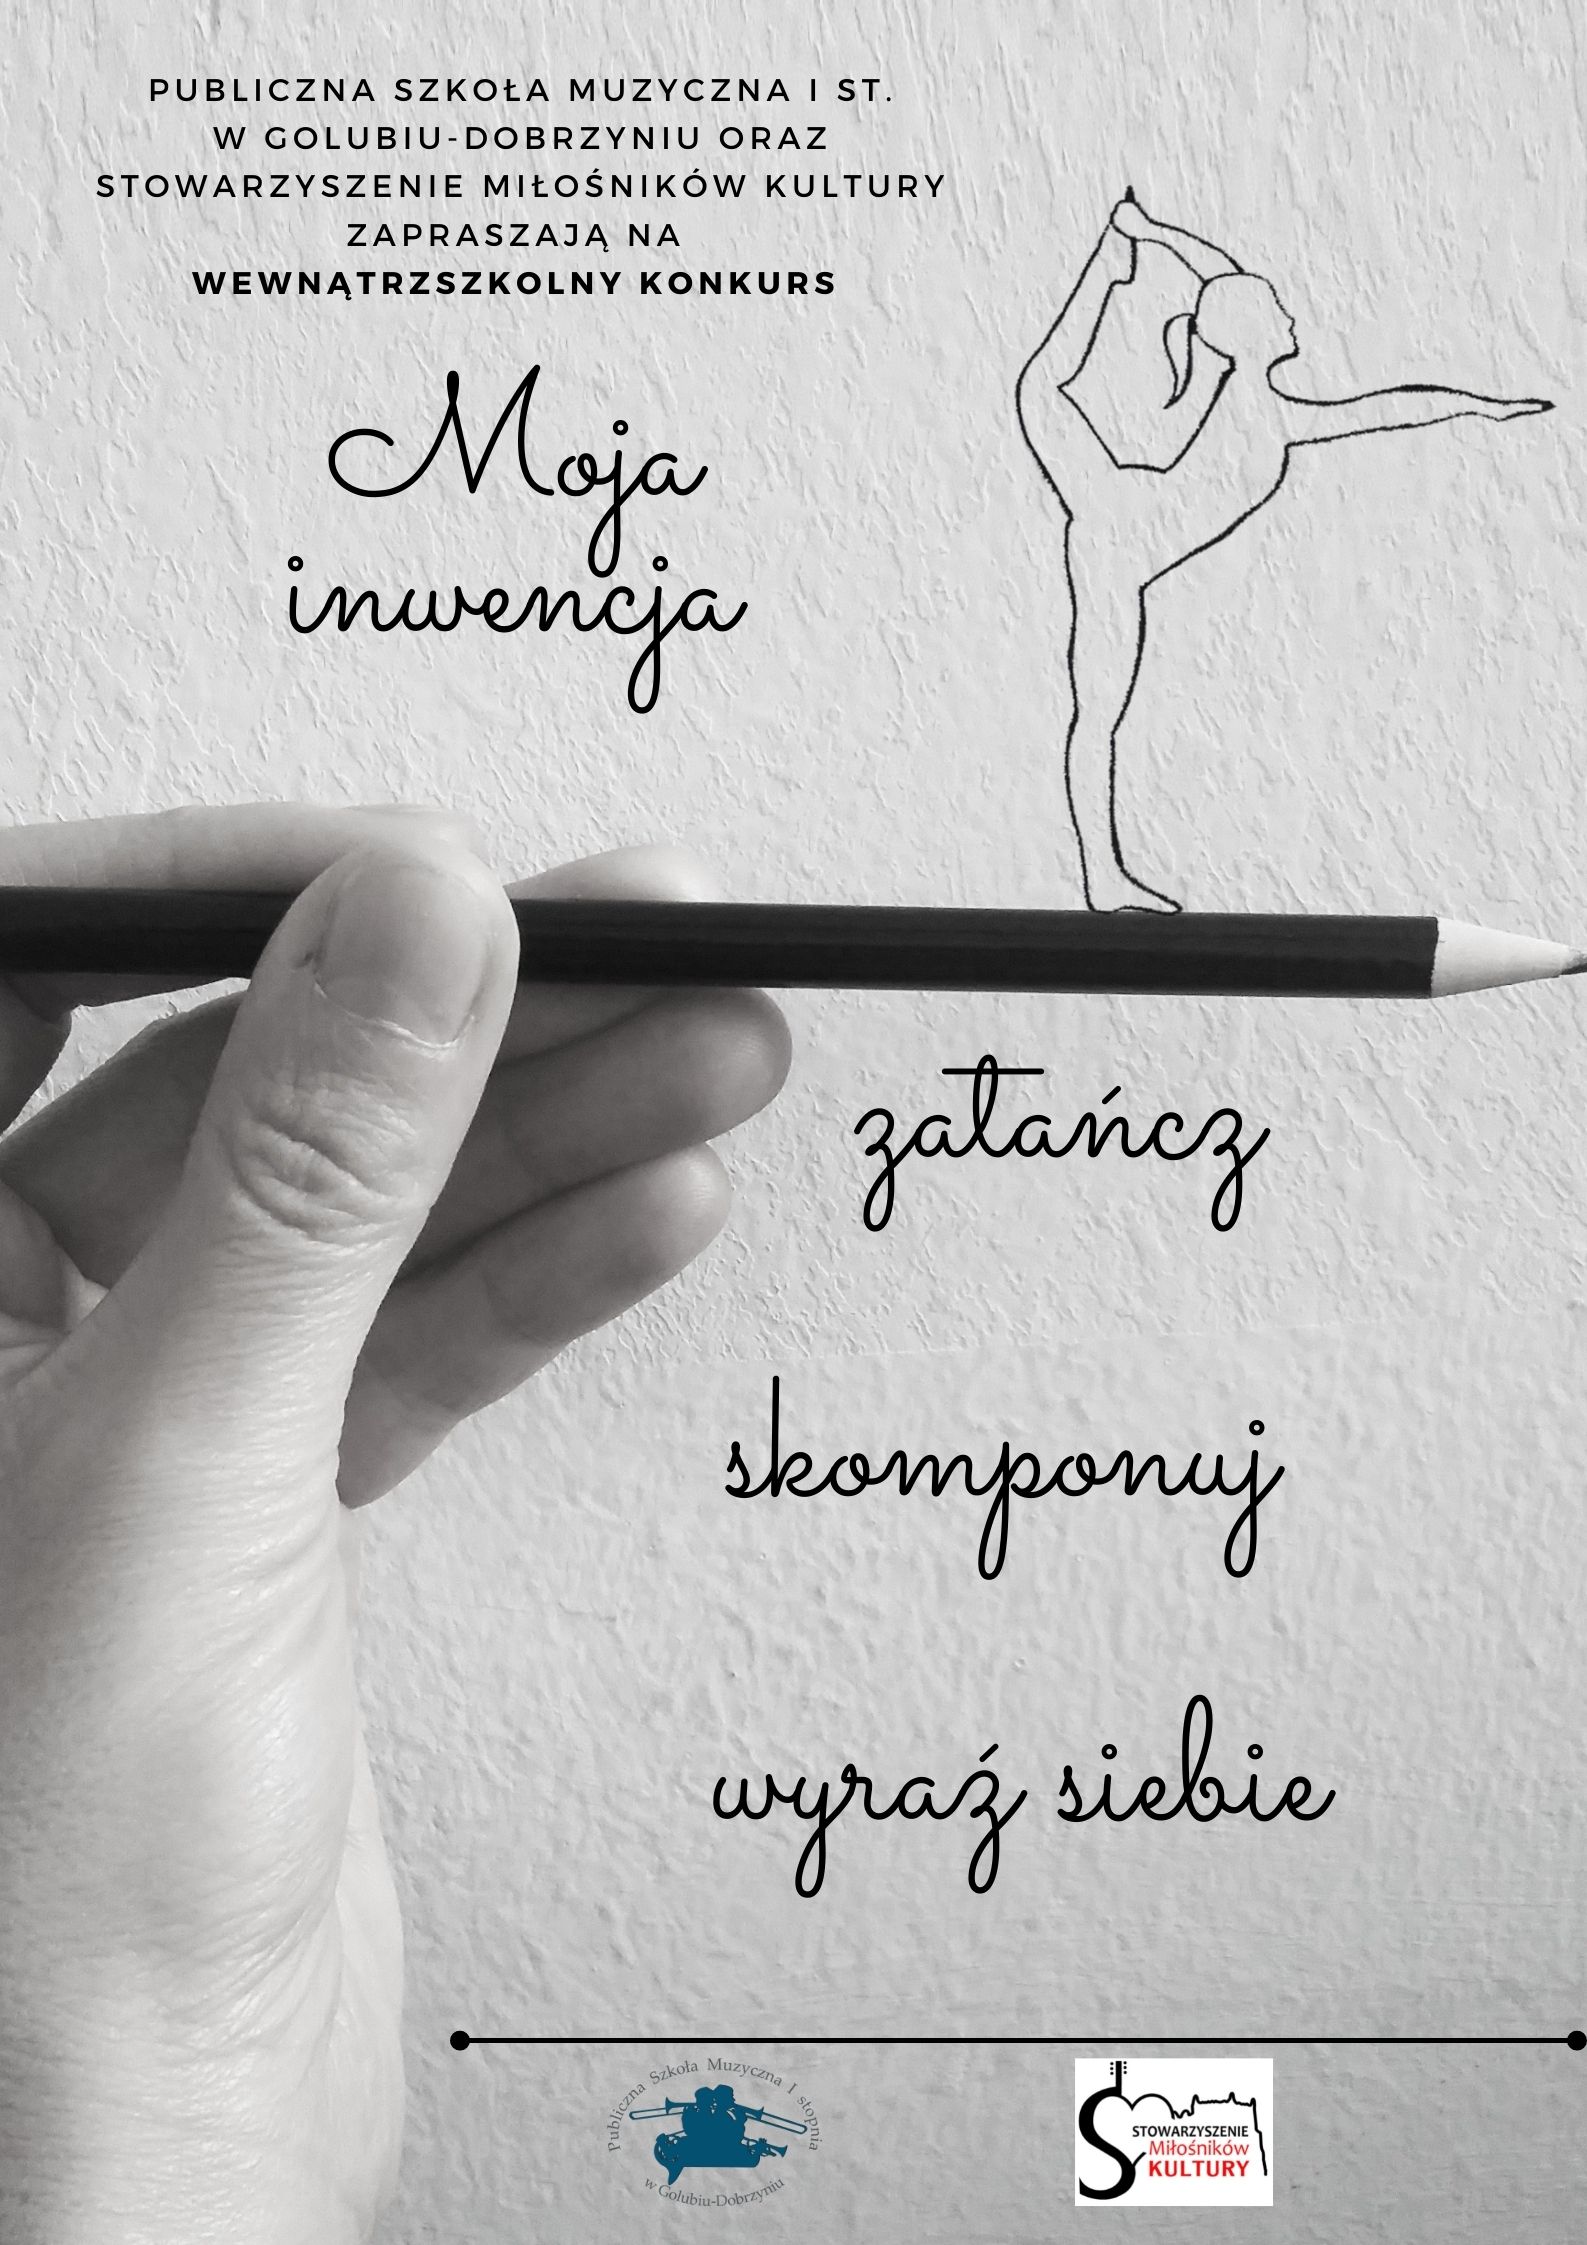 PUBLICZNA SZKOŁA MUZYCZNA I ST.
W GOLUBIU-DOBRZYNIU ORAZ
STOWARZYSZENIE MIŁOŚNIKÓW KULTURY
ZAPRASZAJĄ NA
WEWNĄTRZSZKOLNY KONKURS
Moja
inwencja
zatańcz
skomponuj
wyraź siebie
Publiczna Szkoła Muzyczna I stopnia
w Golubiu-Dobrzyniu
STOWARZYSZENIE
Miłośników
KULTURY